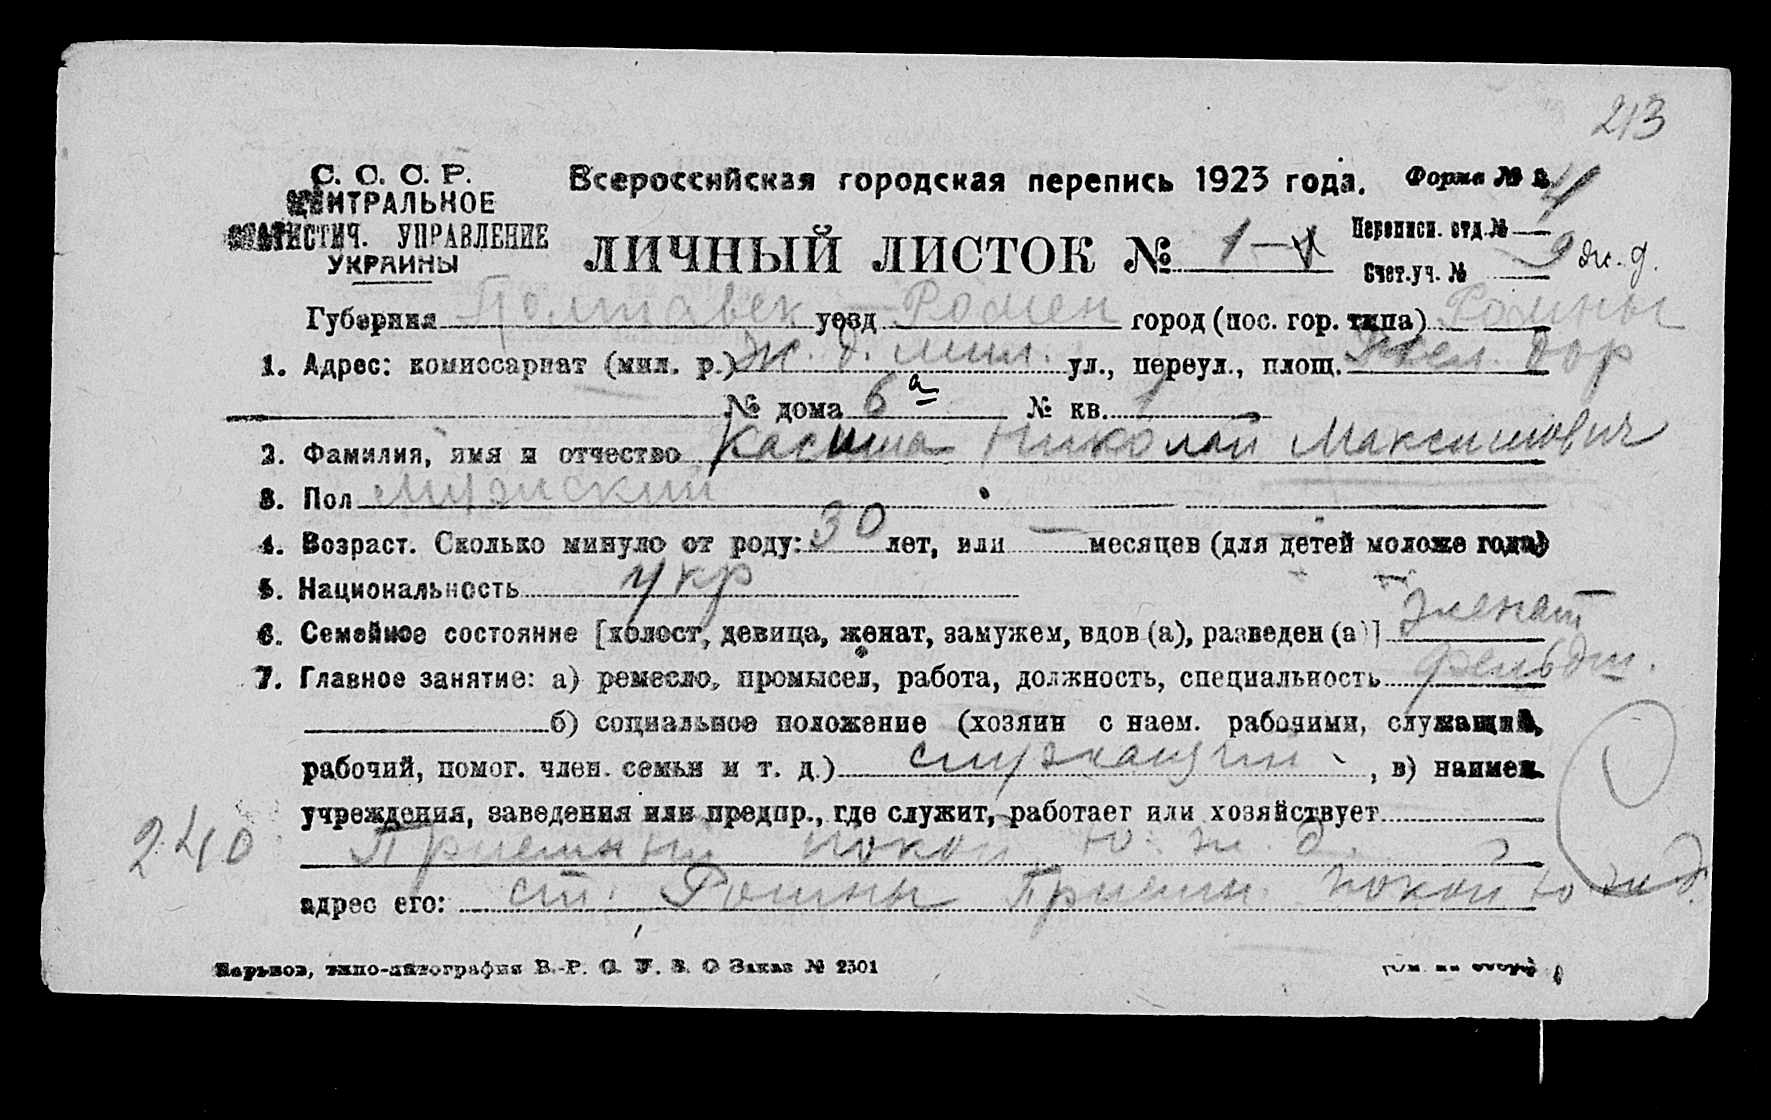 213
С. С. С. Р.
ЦЕНТРАЛЬНОЕ
СТАТИСТИЧ. УПРАВЛЕНИЕ
УКРАИНЫ
Всероссийская городская перепись 1923 года.
Форма №
ЛИЧНЫЙ ЛИСТОК № 1—
Переписн. отд. № 4
Счет.уч. № 9 ж. д.
Губерния Полтавск уезд Ромен город (пос. гор. типа) Ромны
1. Адрес: комиссариат (мил. р.) ж. д. мил. ул., переул., площ. Жел. дор
№ дома 6а № кв. 1
2. Фамилия, имя и отчество Касиша Николай Максимович
3. Пол Мужской
4. Возраст. Сколько минуло от роду: 30 лет, или — месяцев (для детей моложе года)
5. Национальность укр
6. Семейное состояние [холост, девица, женат, замужем, вдов (а), разведен (а)] женат
7. Главное занятие: а) ремесло, промысел, работа, должность, специальность фельдш.
б) социальное положение (хозяин с наем. рабочими, служащий,
рабочий, помог. член. семьи и т. д.) служащий, в) наимен.
учреждения, заведения или предпр., где служит, работает или хозяйствует
240 Приемный покой Ю. ж. д.
адрес его: ст. Ромны Прием. покой Ю ж д.
Харьков, типо-литография В.-Р. З. О Заказ № 2501